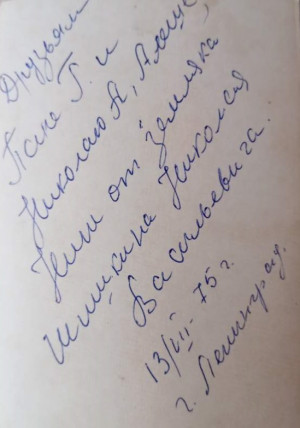 Друзьям
Г. и
Николаю А,
от земляка
Шишкина Николая
Васильевича.
13/VIII-75 г.
г. Ленинград.